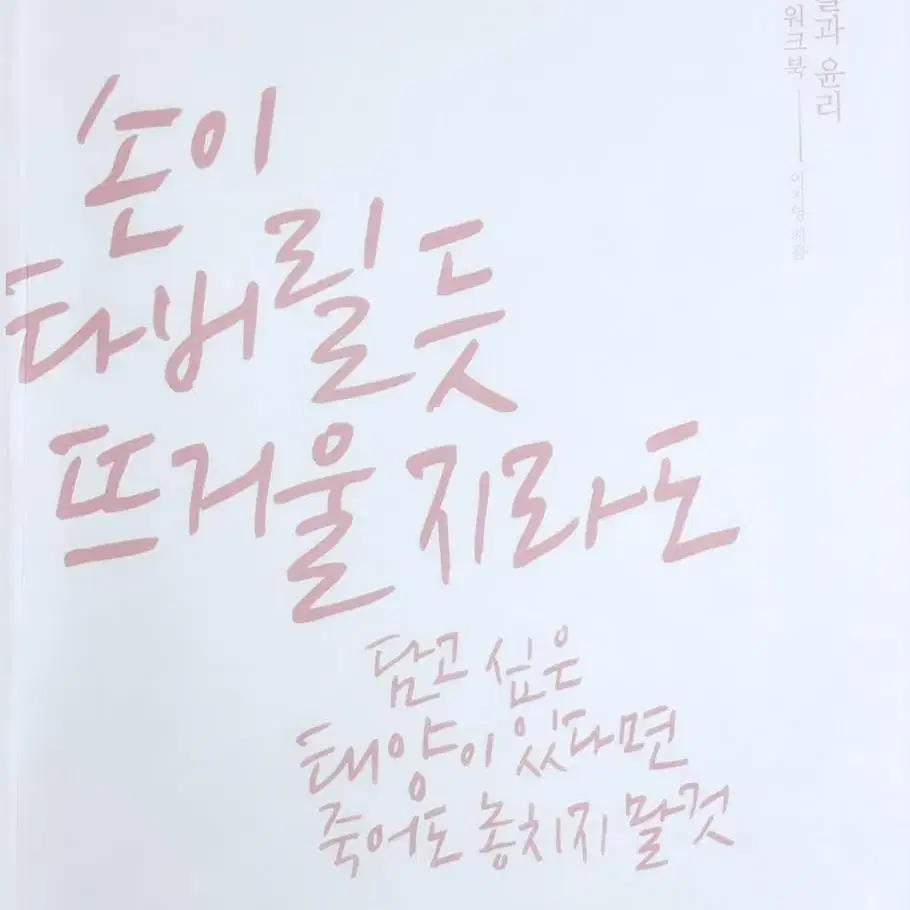 손이
타버릴 듯
뜨거울지라도
담고 싶은
태양이 있다면
죽어도 놓치지 말 것
과 윤리
워크북
이지영 지음